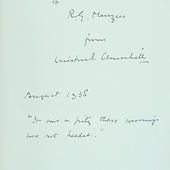 To
R.G. Menzies
from
Winston S. Churchill
August 1938
"It was a pity these warnings
were not heeded."